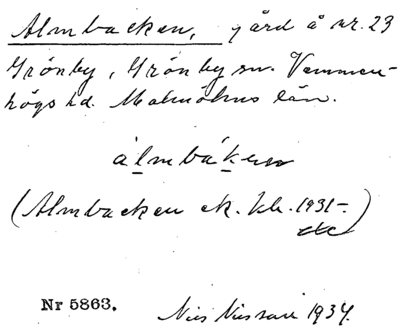 Almbacken, gård å nr. 23
Grönby, Grönby sn. Vemmen-
högs hd. Malmöhus län.
álmbáken
(Almbacken ek. kh. 1931-.)
Nr 5863.
Nils Nilsson 1934.